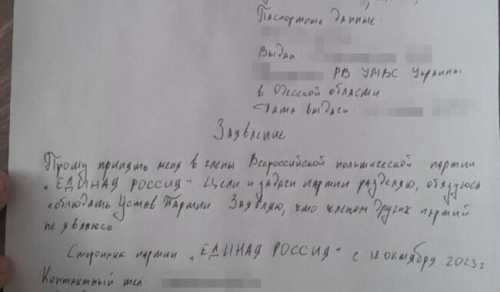 Паспортные данные
Выдан
РВ УМВС Украины
в Одесской области
Дата выдачи
Заявление
Прошу принять меня в члены Всероссийской политической партии
"ЕДИНАЯ РОССИЯ" Цели и задачи партии разделяю, обязуюсь
соблюдать Устав Партии Заявляю, что членом других партий
не являюсь
Сторонник партии "ЕДИНАЯ РОССИЯ" с 18 октября 2023 г
Контактный тел